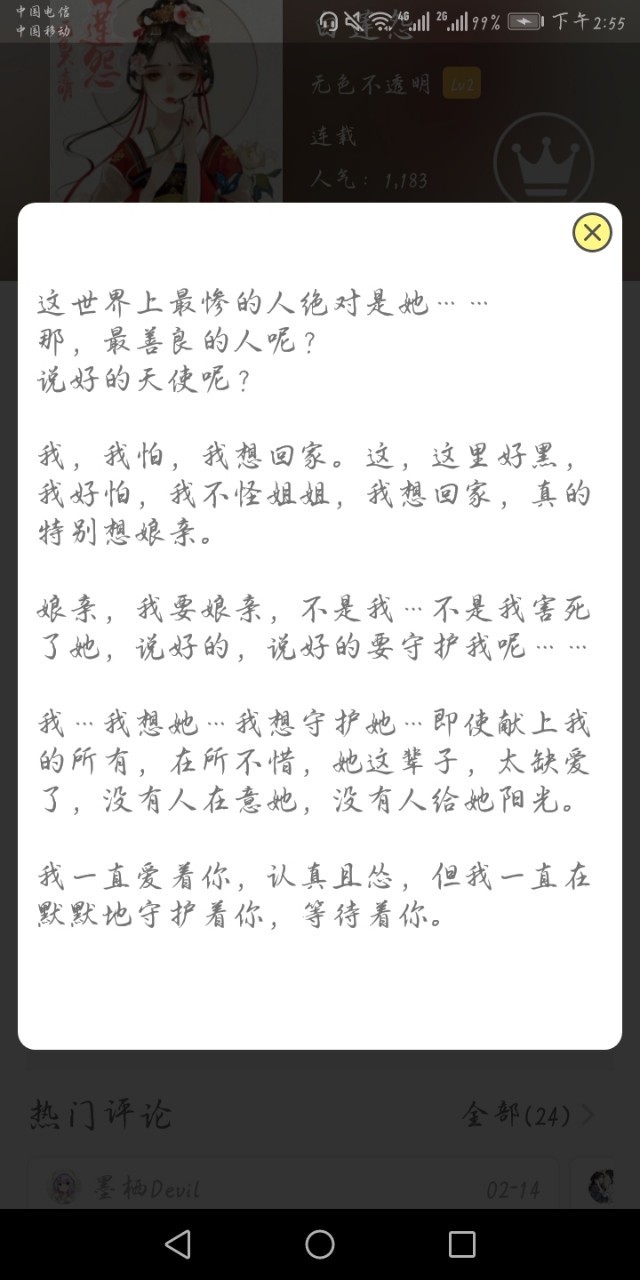 中国电信
中国移动
4G
2G
99%
下午2:55
白莲怨
无色不透明 Lv2
连载
人气：1,183
这世界上最惨的人绝对是她……
那，最善良的人呢？
说好的天使呢？
我，我怕，我想回家。这，这里好黑，
我好怕，我不怪姐姐，我想回家，真的
特别想娘亲。
娘亲，我要娘亲，不是我…不是我害死
了她，说好的，说好的要守护我呢……
我…我想她…我想守护她…即使献上我
的所有，在所不惜，她这辈子，太缺爱
了，没有人在意她，没有人给她阳光。
我一直爱着你，认真且怂，但我一直在
默默地守护着你，等待着你。
热门评论
全部(24)
墨栖Devil
02-14